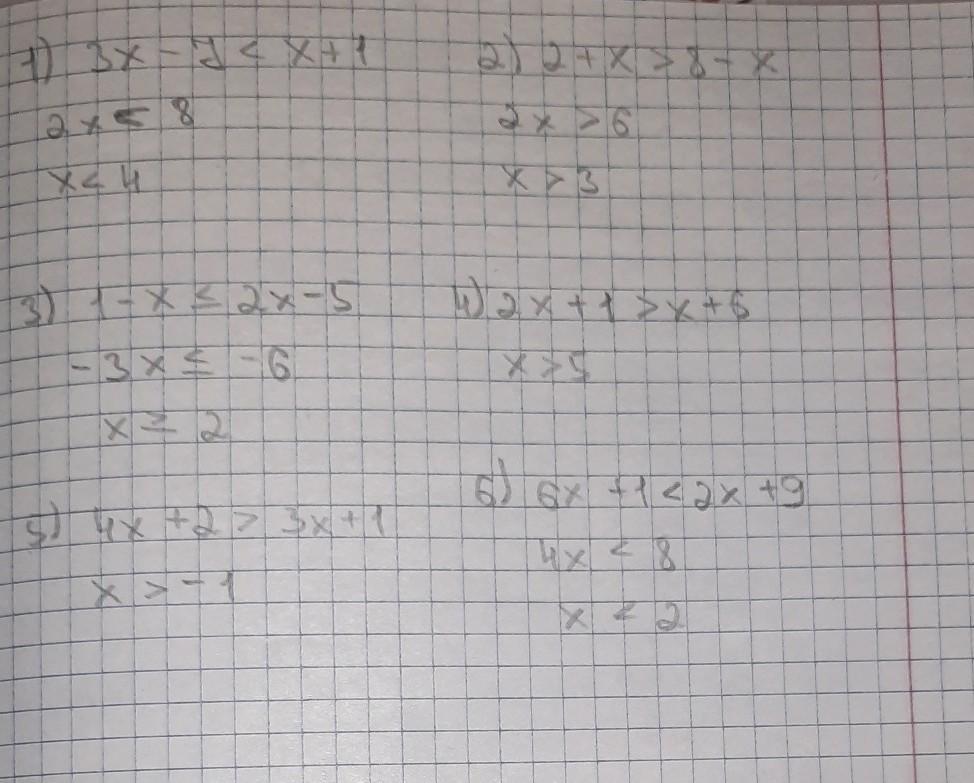 1) 3x - 7 < x + 1
2x < 8
x < 4
2) 2 + x > 8 - x
2x > 6
x > 3
3) 1 - x ≤ 2x - 5
-3x ≤ -6
x ≥ 2
4) 2x + 1 > x + 6
x > 5
5) 4x + 2 > 3x + 1
x > -1
6) 6x + 1 < 2x + 9
4x < 8
x < 2